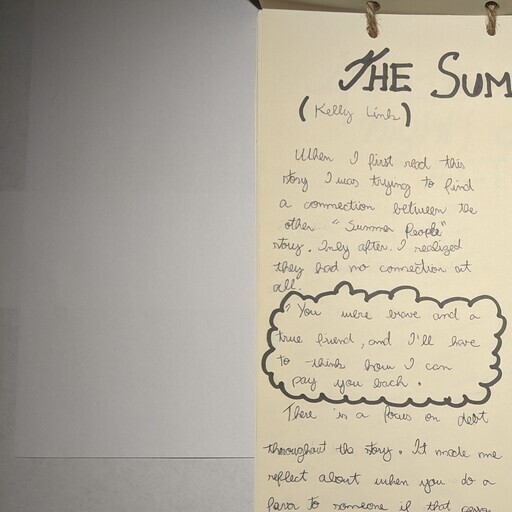 THE SUM
(Kelly Link)
When I first read this
story I was trying to find
a connection between the
other "Summer People"
story. Only after I realized
they had no connection at
all.
" You were brave and a
true friend, and I'll have
to think how I can
pay you back.
There is a focus on debt
throughout the story. It made me
reflect about when you do a
favor to someone if that